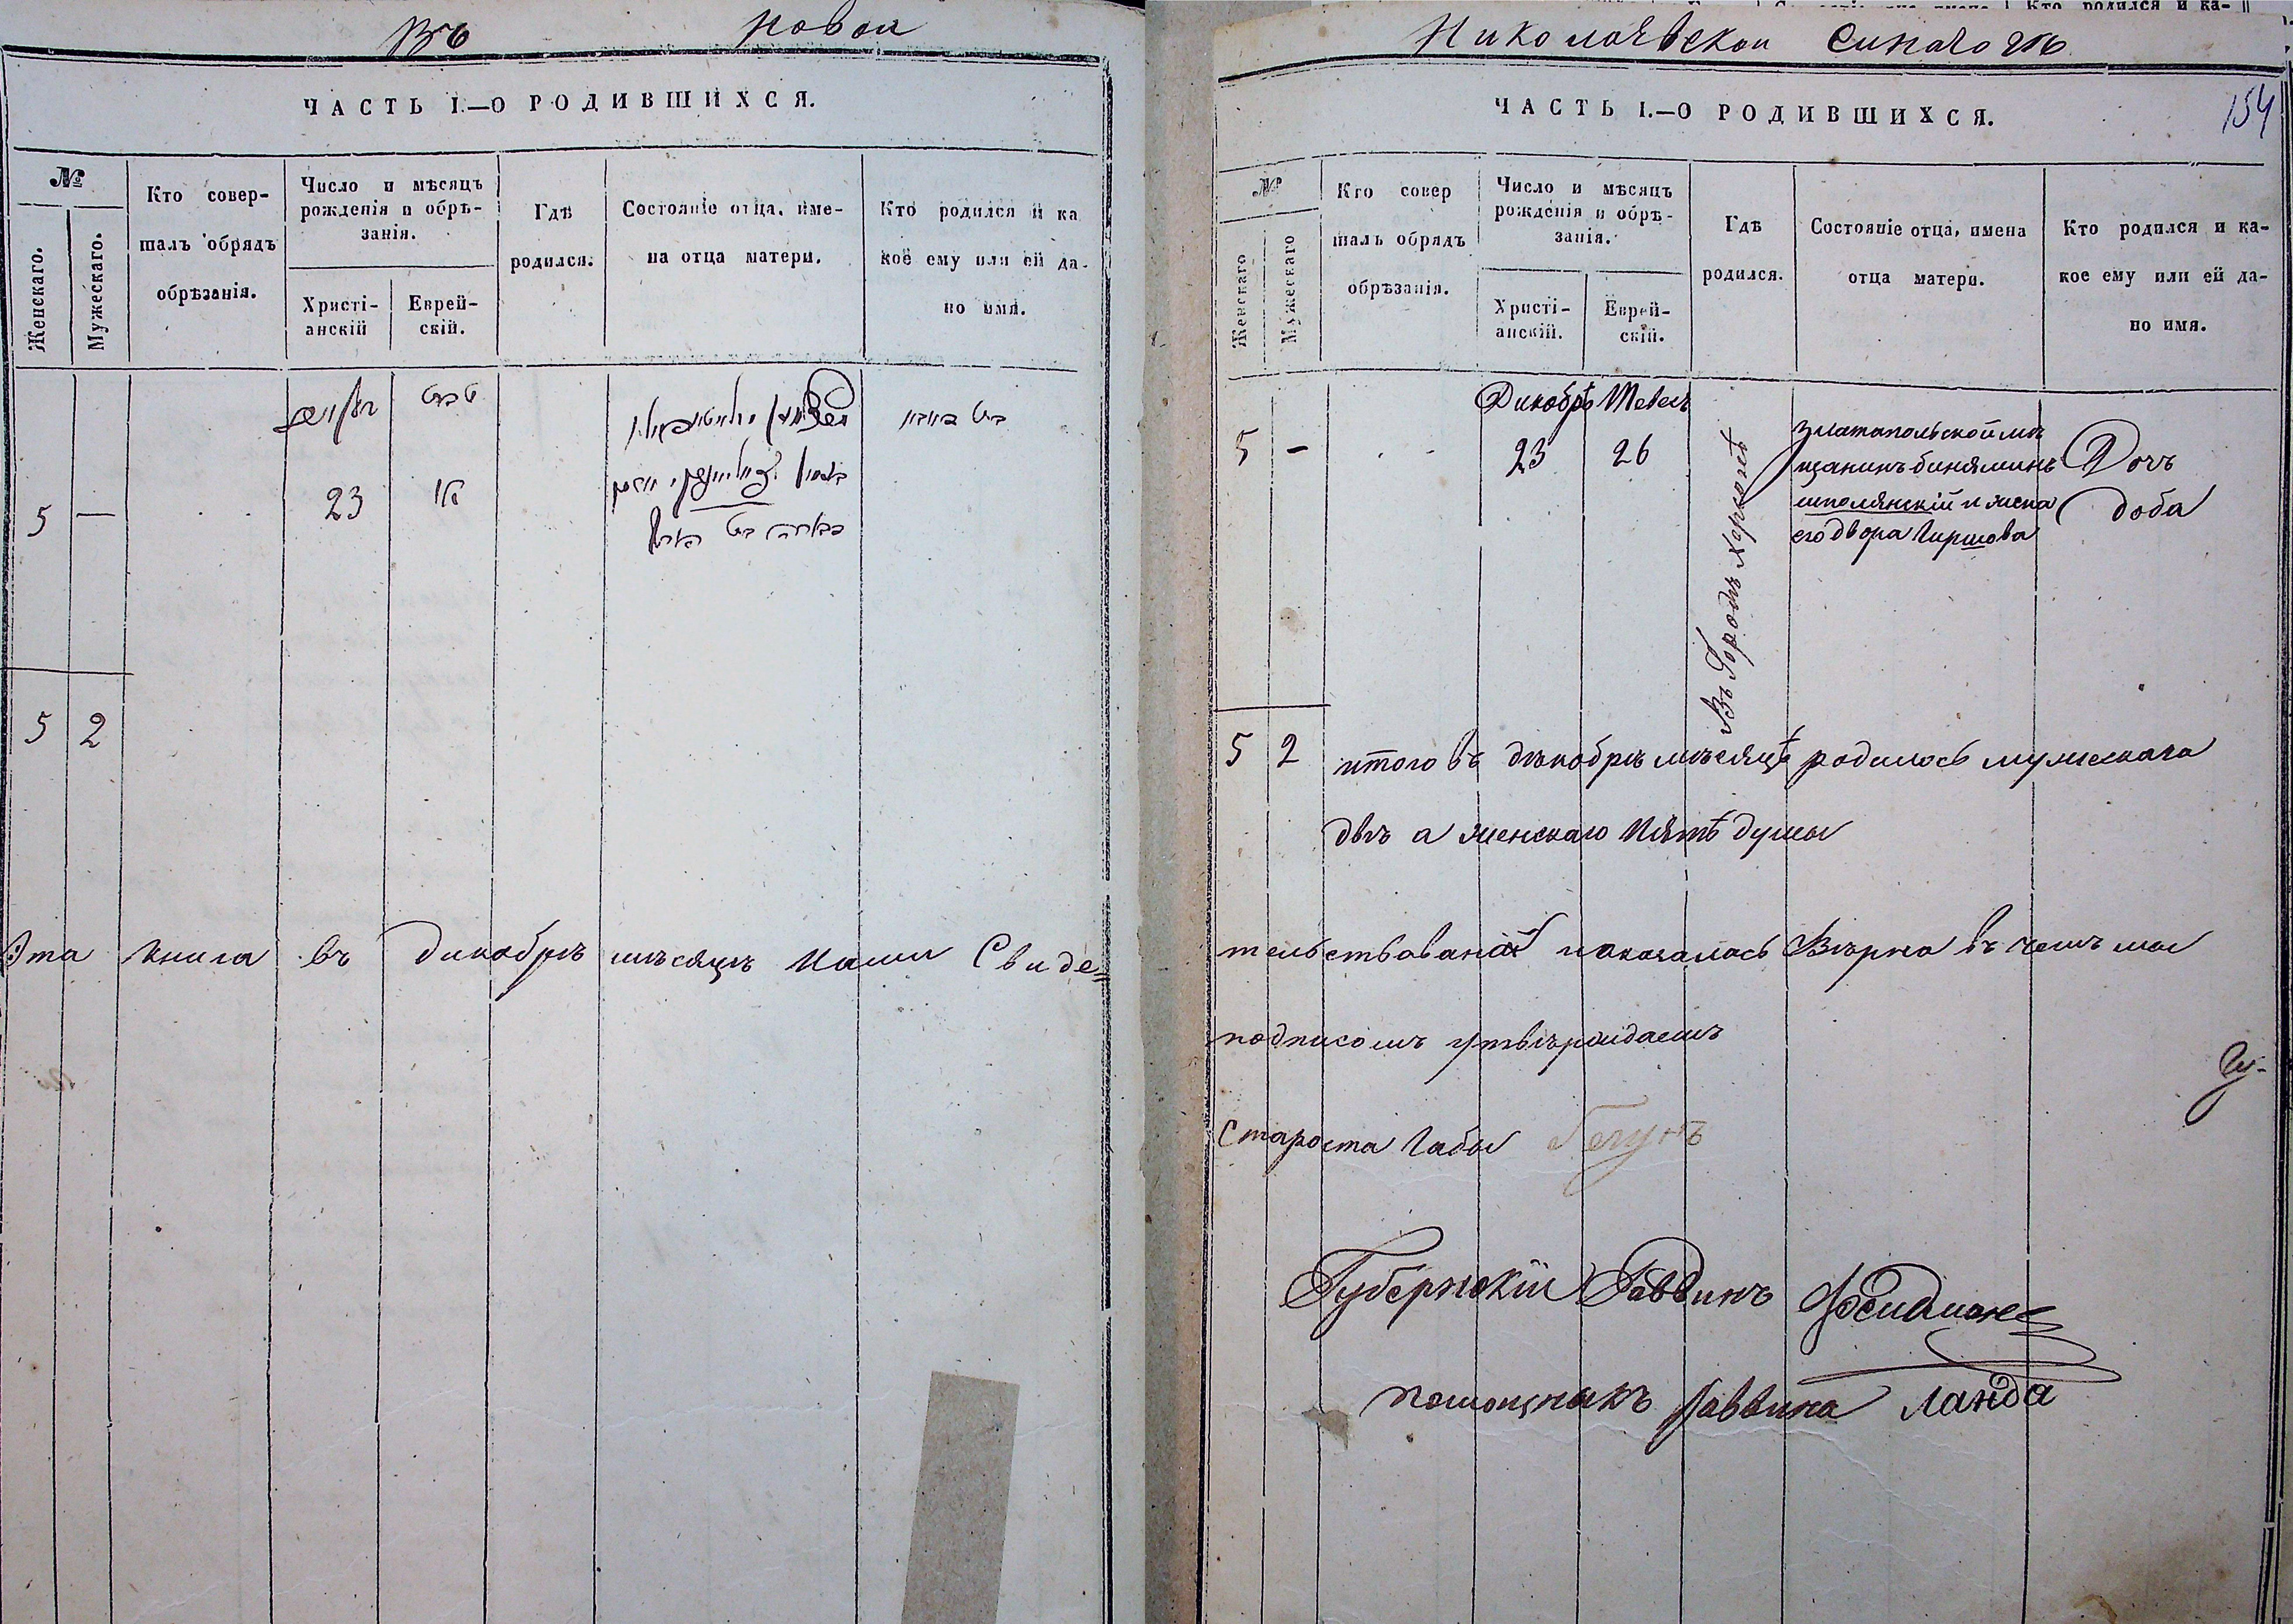 Въ новой
ЧАСТЬ I.—О РОДИВШИХСЯ.
№
Женскаго.
Мужескаго.
Кто совер-
шалъ обрядъ
обрѣзанія.
Число и мѣсяцъ
рожденія и обрѣ-
занія.
Христі-
анскій
Еврей-
скій.
Гдѣ
родился.
Состояніе отца, име-
на отца матери.
Кто родился и ка
кое ему или ей да-
но имя.
5 — 23
5 2
Эта книга въ декабрѣ мѣсяцѣ нами Свиде=
Николаевской Синагогѣ
154
ЧАСТЬ I.—О РОДИВШИХСЯ.
№
Женскаго
Мужескаго
Кто совер
шалъ обрядъ
обрѣзанія.
Число и мѣсяцъ
рожденія и обрѣ-
занія.
Христі-
анскій.
Еврей-
скій.
Гдѣ
родился.
Состояніе отца, имена
отца матери.
Кто родился и ка-
кое ему или ей да-
но имя.
Дикабрь Тевесъ
5 - 23 26
Въ Городѣ Херсонѣ
златапольской мѣ
щанинъ биняминъ
шполянскій и жена
его двора Гиршова
Дочъ
доба
5 2 итого въ декабрѣ мѣсяцѣ родилось мужескага
двѣ а женскаго пять душы
тельствована и оказалась Вѣрна въ чемъ мы
подписомъ утвѣрждаемъ
Староста Габы
Губернскій Раввинъ
помощникъ Раввина Ланда